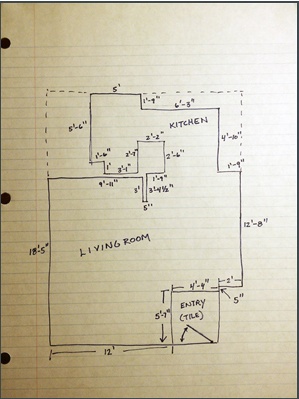 5'
1'-9"
6'-3"
KITCHEN
5'-6"
4'-10"
2'-2"
1'-6"
1'
2'-7"
2'-6"
3'-1"
1'-9"
1'-9"
9'-11"
3'
3'-4½"
5"
18'-5"
LIVING ROOM
12'-8"
4'-4"
2'
5"
5'-7"
ENTRY
(TILE)
12'